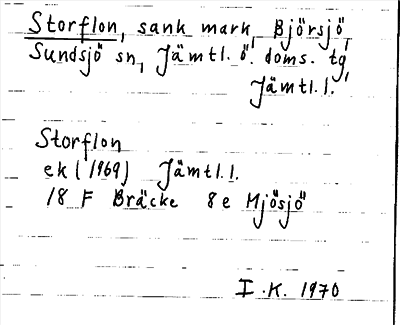 Storflon, sank mark, Björsjö,
Sundsjö sn, Jämtl. ö. doms. tg,
Jämtl.l.
Storflon
ek (1969) Jämtl.l.
18 F Bräcke 8e Mjösjö
I.K. 1970